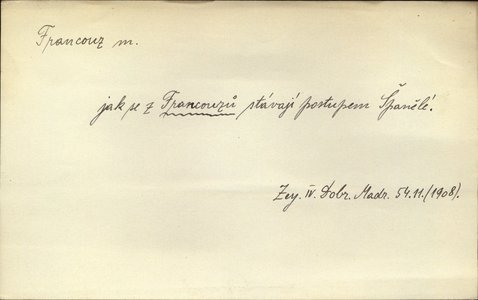 Francouz m.
jak se z Francouzů stávají postupem Španělé.
Zey. IV. Dobr. Madr. 54.11. (1908).